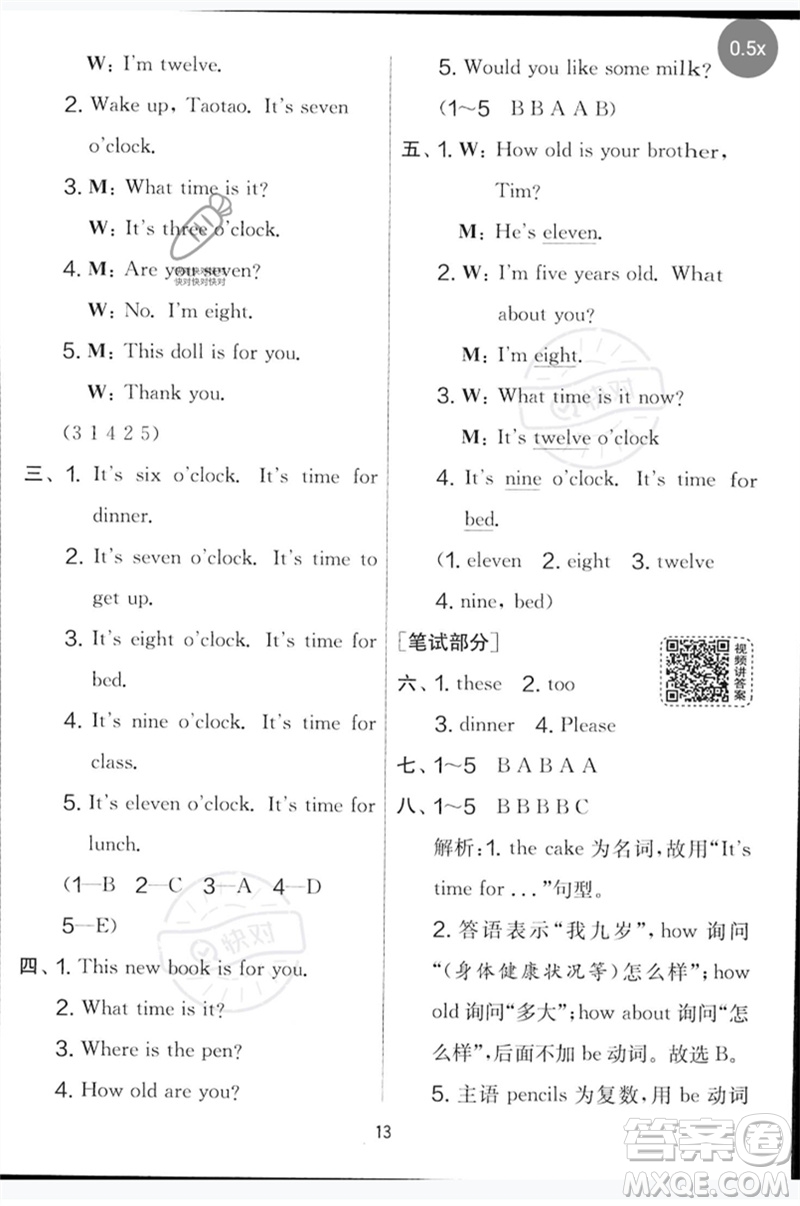 0.5x
W: I'm twelve.
2. Wake up, Taotao. It's seven
o'clock.
3. M: What time is it?
W: It's three o'clock.
4. M: Are you seven?
W: No. I'm eight.
5. M: This doll is for you.
W: Thank you.
(3 1 4 2 5)
三、1. It's six o'clock. It's time for
dinner.
2. It's seven o'clock. It's time to
get up.
3. It's eight o'clock. It's time for
bed.
4. It's nine o'clock. It's time for
class.
5. It's eleven o'clock. It's time for
lunch.
(1—B 2—C 3—A 4—D
5—E)
四、1. This new book is for you.
2. What time is it?
3. Where is the pen?
4. How old are you?
5. Would you like some milk?
(1~5 B B A A B)
五、1. W: How old is your brother,
Tim?
M: He's eleven.
2. W: I'm five years old. What
about you?
M: I'm eight.
3. W: What time is it now?
M: It's twelve o'clock
4. It's nine o'clock. It's time for
bed.
(1. eleven 2. eight 3. twelve
4. nine, bed)
[笔试部分]
视频讲答案
六、1. these 2. too
3. dinner 4. Please
七、1~5 B A B A A
八、1~5 B B B B C
解析:1. the cake 为名词，故用“It's
time for ...”句型。
2. 答语表示“我九岁”，how 询问
“(身体健康状况等)怎么样”；how
old 询问“多大”；how about 询问“怎
么样”，后面不加 be 动词。故选 B。
5. 主语 pencils 为复数，用 be 动词
13
快对快对快对
快对
快对
答案圈
MXQE.COM